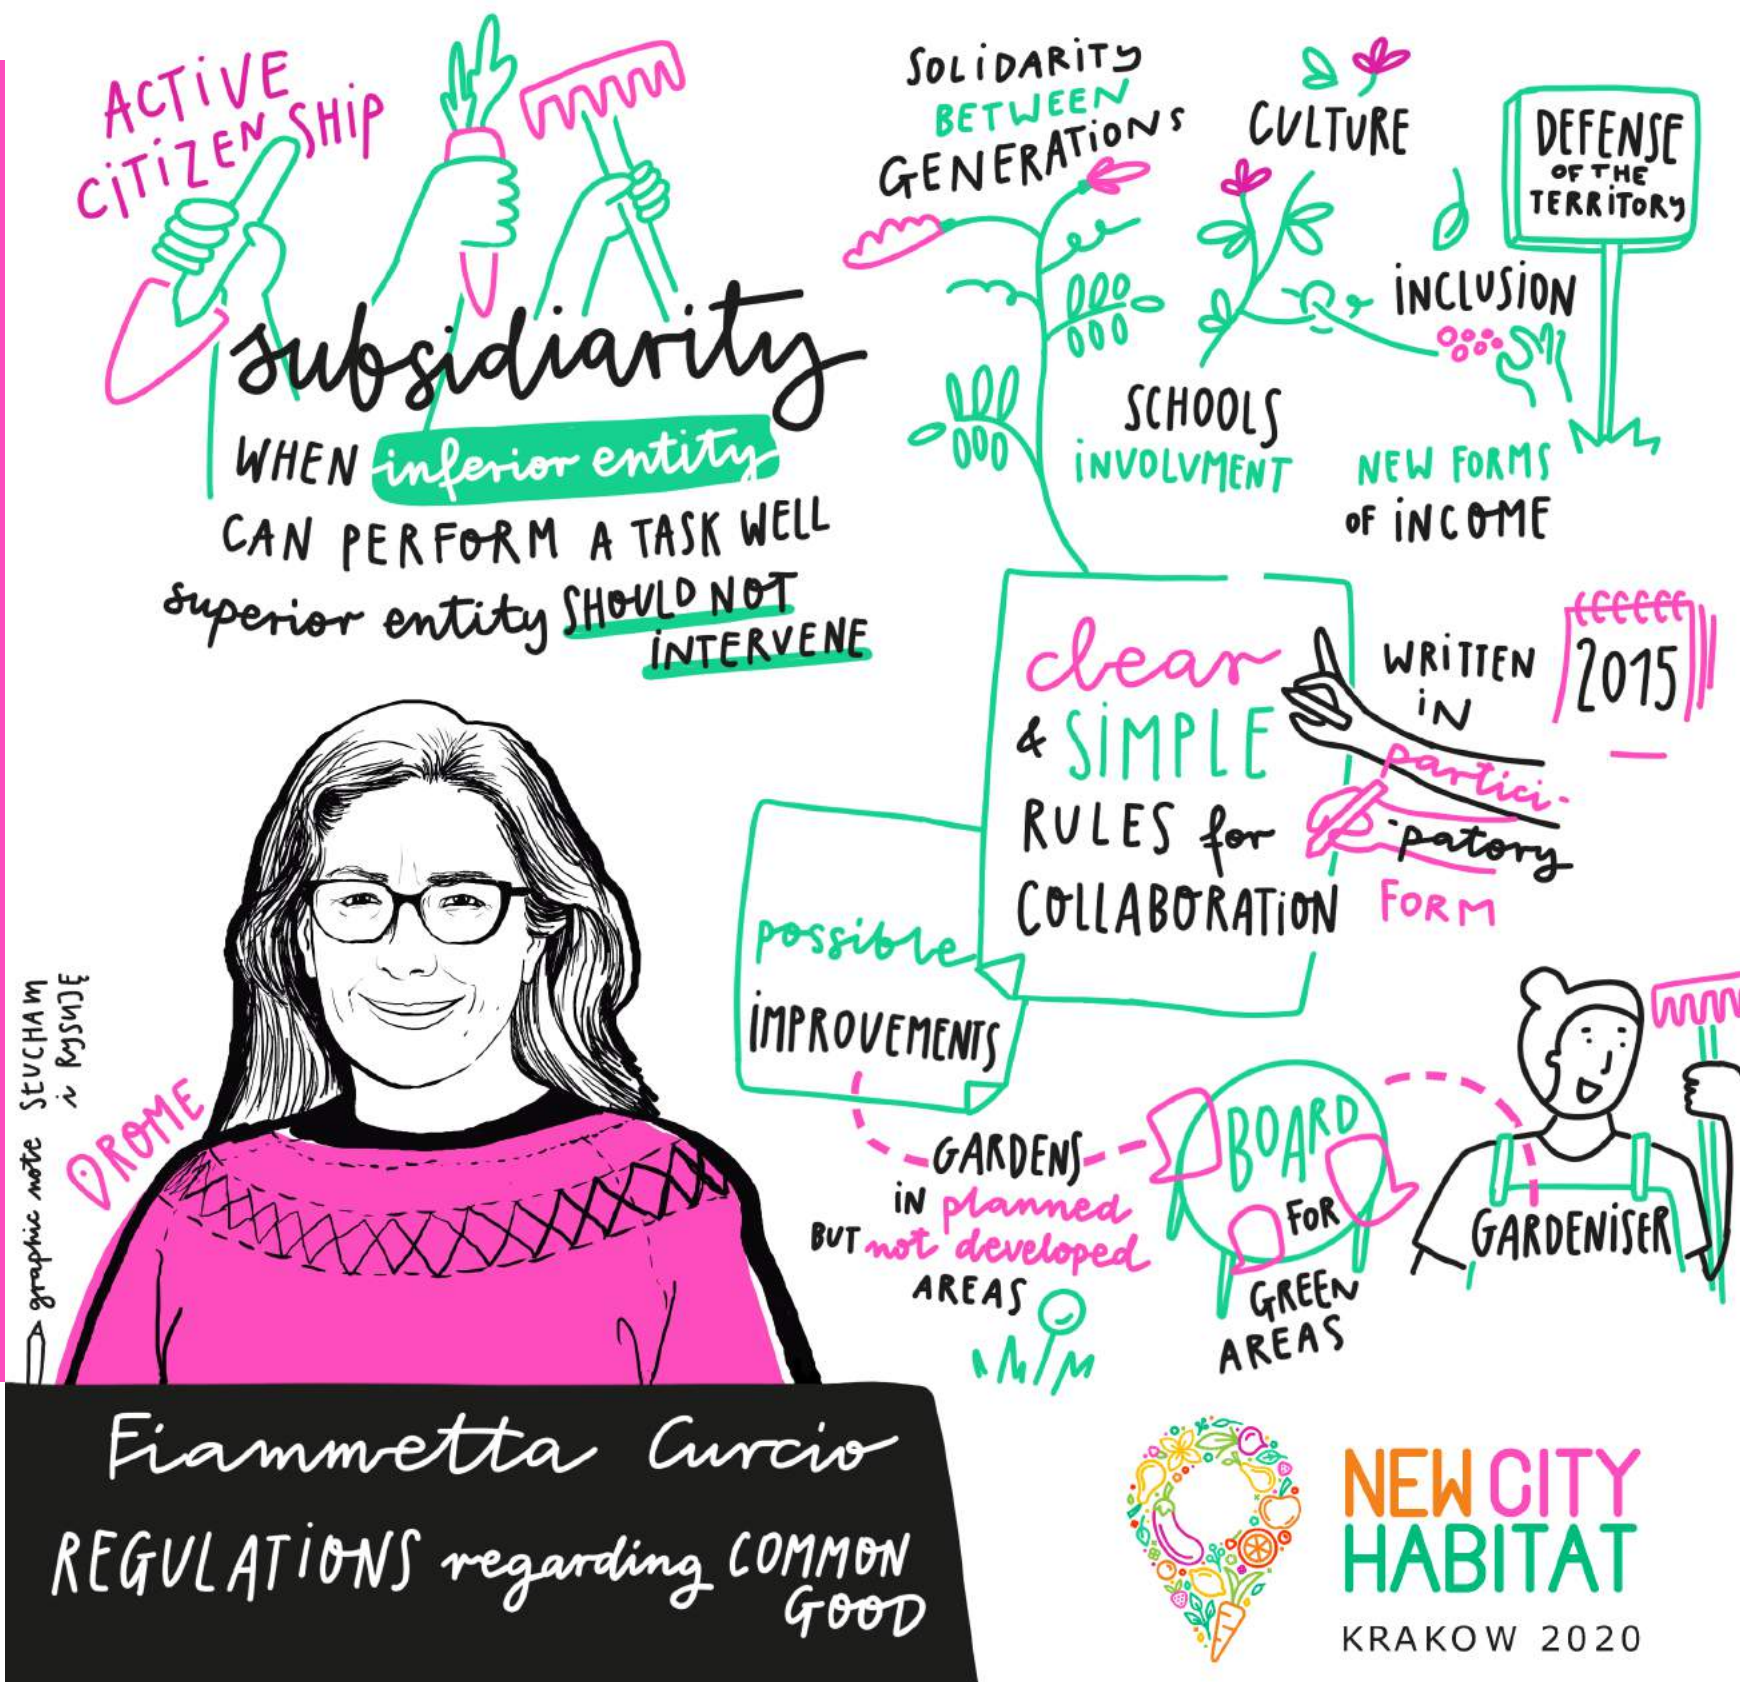 ACTIVE
CITIZENSHIP
subsidiarity
WHEN inferior entity
CAN PERFORM A TASK WELL
superior entity SHOULD NOT
INTERVENE
SOLIDARITY
BETWEEN
GENERATIONS
CULTURE
DEFENSE
OF THE
TERRITORY
INCLUSION
SCHOOLS
INVOLVMENT
NEW FORMS
OF INCOME
clear
& SIMPLE
RULES for
COLLABORATION
WRITTEN
IN
partici-
-patory
FORM
2015
possible
IMPROVEMENTS
GARDENS
IN planned
BUT not developed
AREAS
BOARD
FOR
GREEN
AREAS
GARDENISER
ROME
graphic note SŁUCHAM
i RYSUJĘ
Fiammetta Curcio
REGULATIONS regarding COMMON
GOOD
NEW CITY
HABITAT
KRAKOW 2020